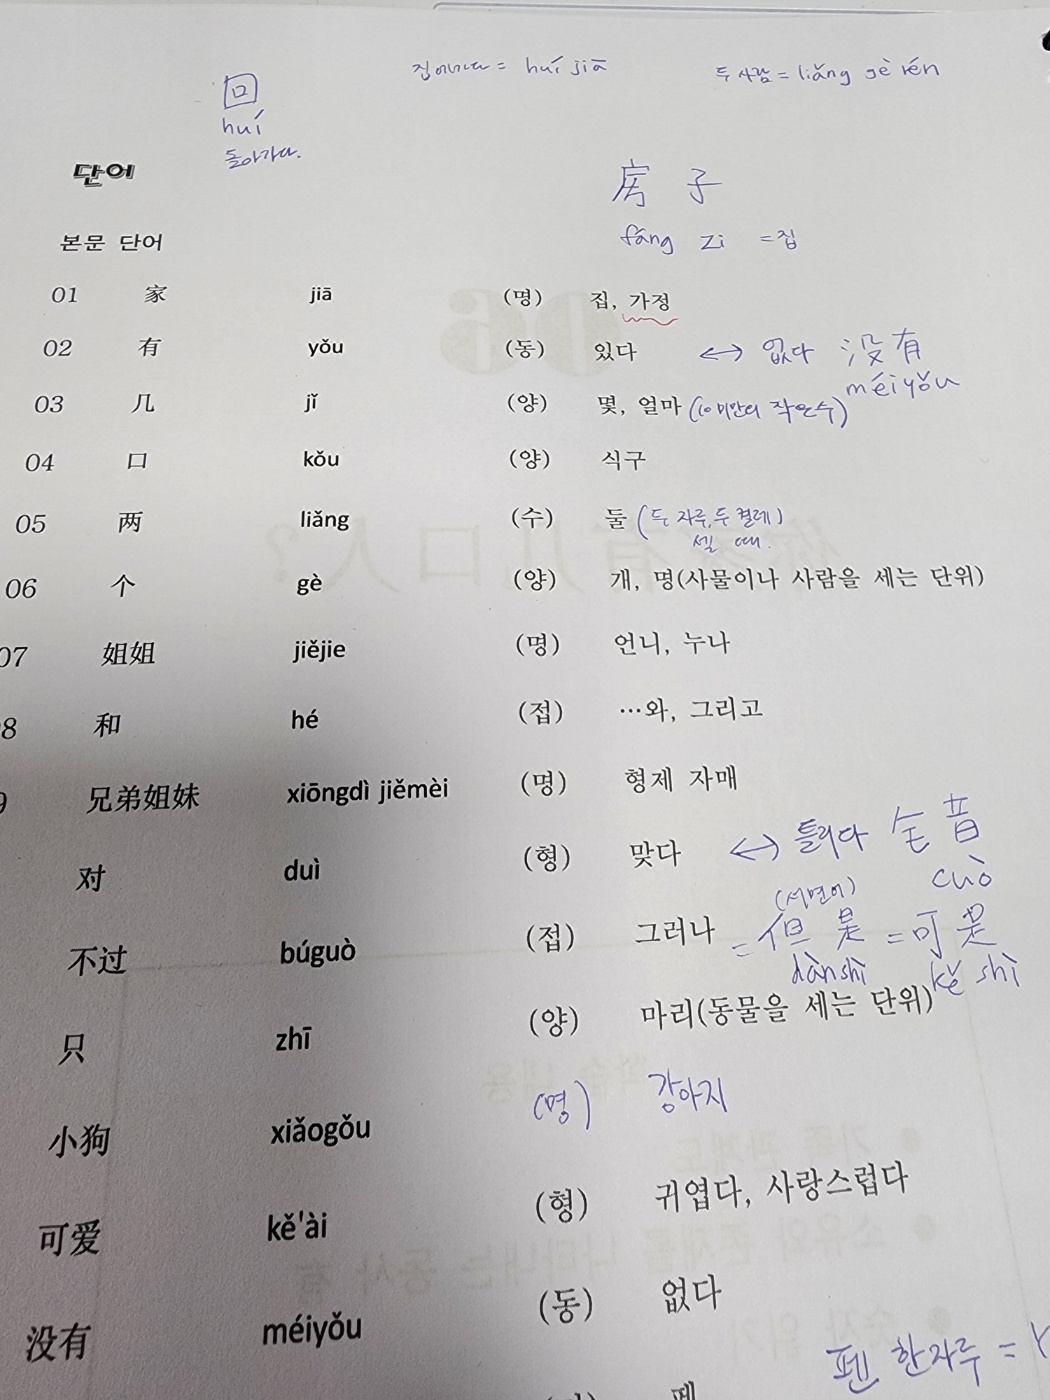 집에가다 = huí jiā
두 사람 = liǎng gè rén
回
huí
돌아가다.
단어
房 子
fáng zi = 집
본문 단어
01 家 jiā (명) 집, 가정
02 有 yǒu (동) 있다 ↔ 없다 没有
méi yǒu
03 几 jǐ (양) 몇, 얼마 (10 미만의 작은수)
04 口 kǒu (양) 식구
05 两 liǎng (수) 둘 (두 자루, 두 켤레)
셀 때.
06 个 gè (양) 개, 명(사물이나 사람을 세는 단위)
07 姐姐 jiějie (명) 언니, 누나
8 和 hé (접) …와, 그리고
9 兄弟姐妹 xiōngdì jiěmèi (명) 형제 자매
对 duì (형) 맞다 ↔ 틀리다 错
cuò
(서면어)
不过 búguò (접) 그러나 = 但是 = 可是
dànshì kě shì
只 zhī (양) 마리(동물을 세는 단위)
小狗 xiǎogǒu (명) 강아지
可爱 kě'ài (형) 귀엽다, 사랑스럽다
没有 méiyǒu (동) 없다
펜 한자루 =
펜